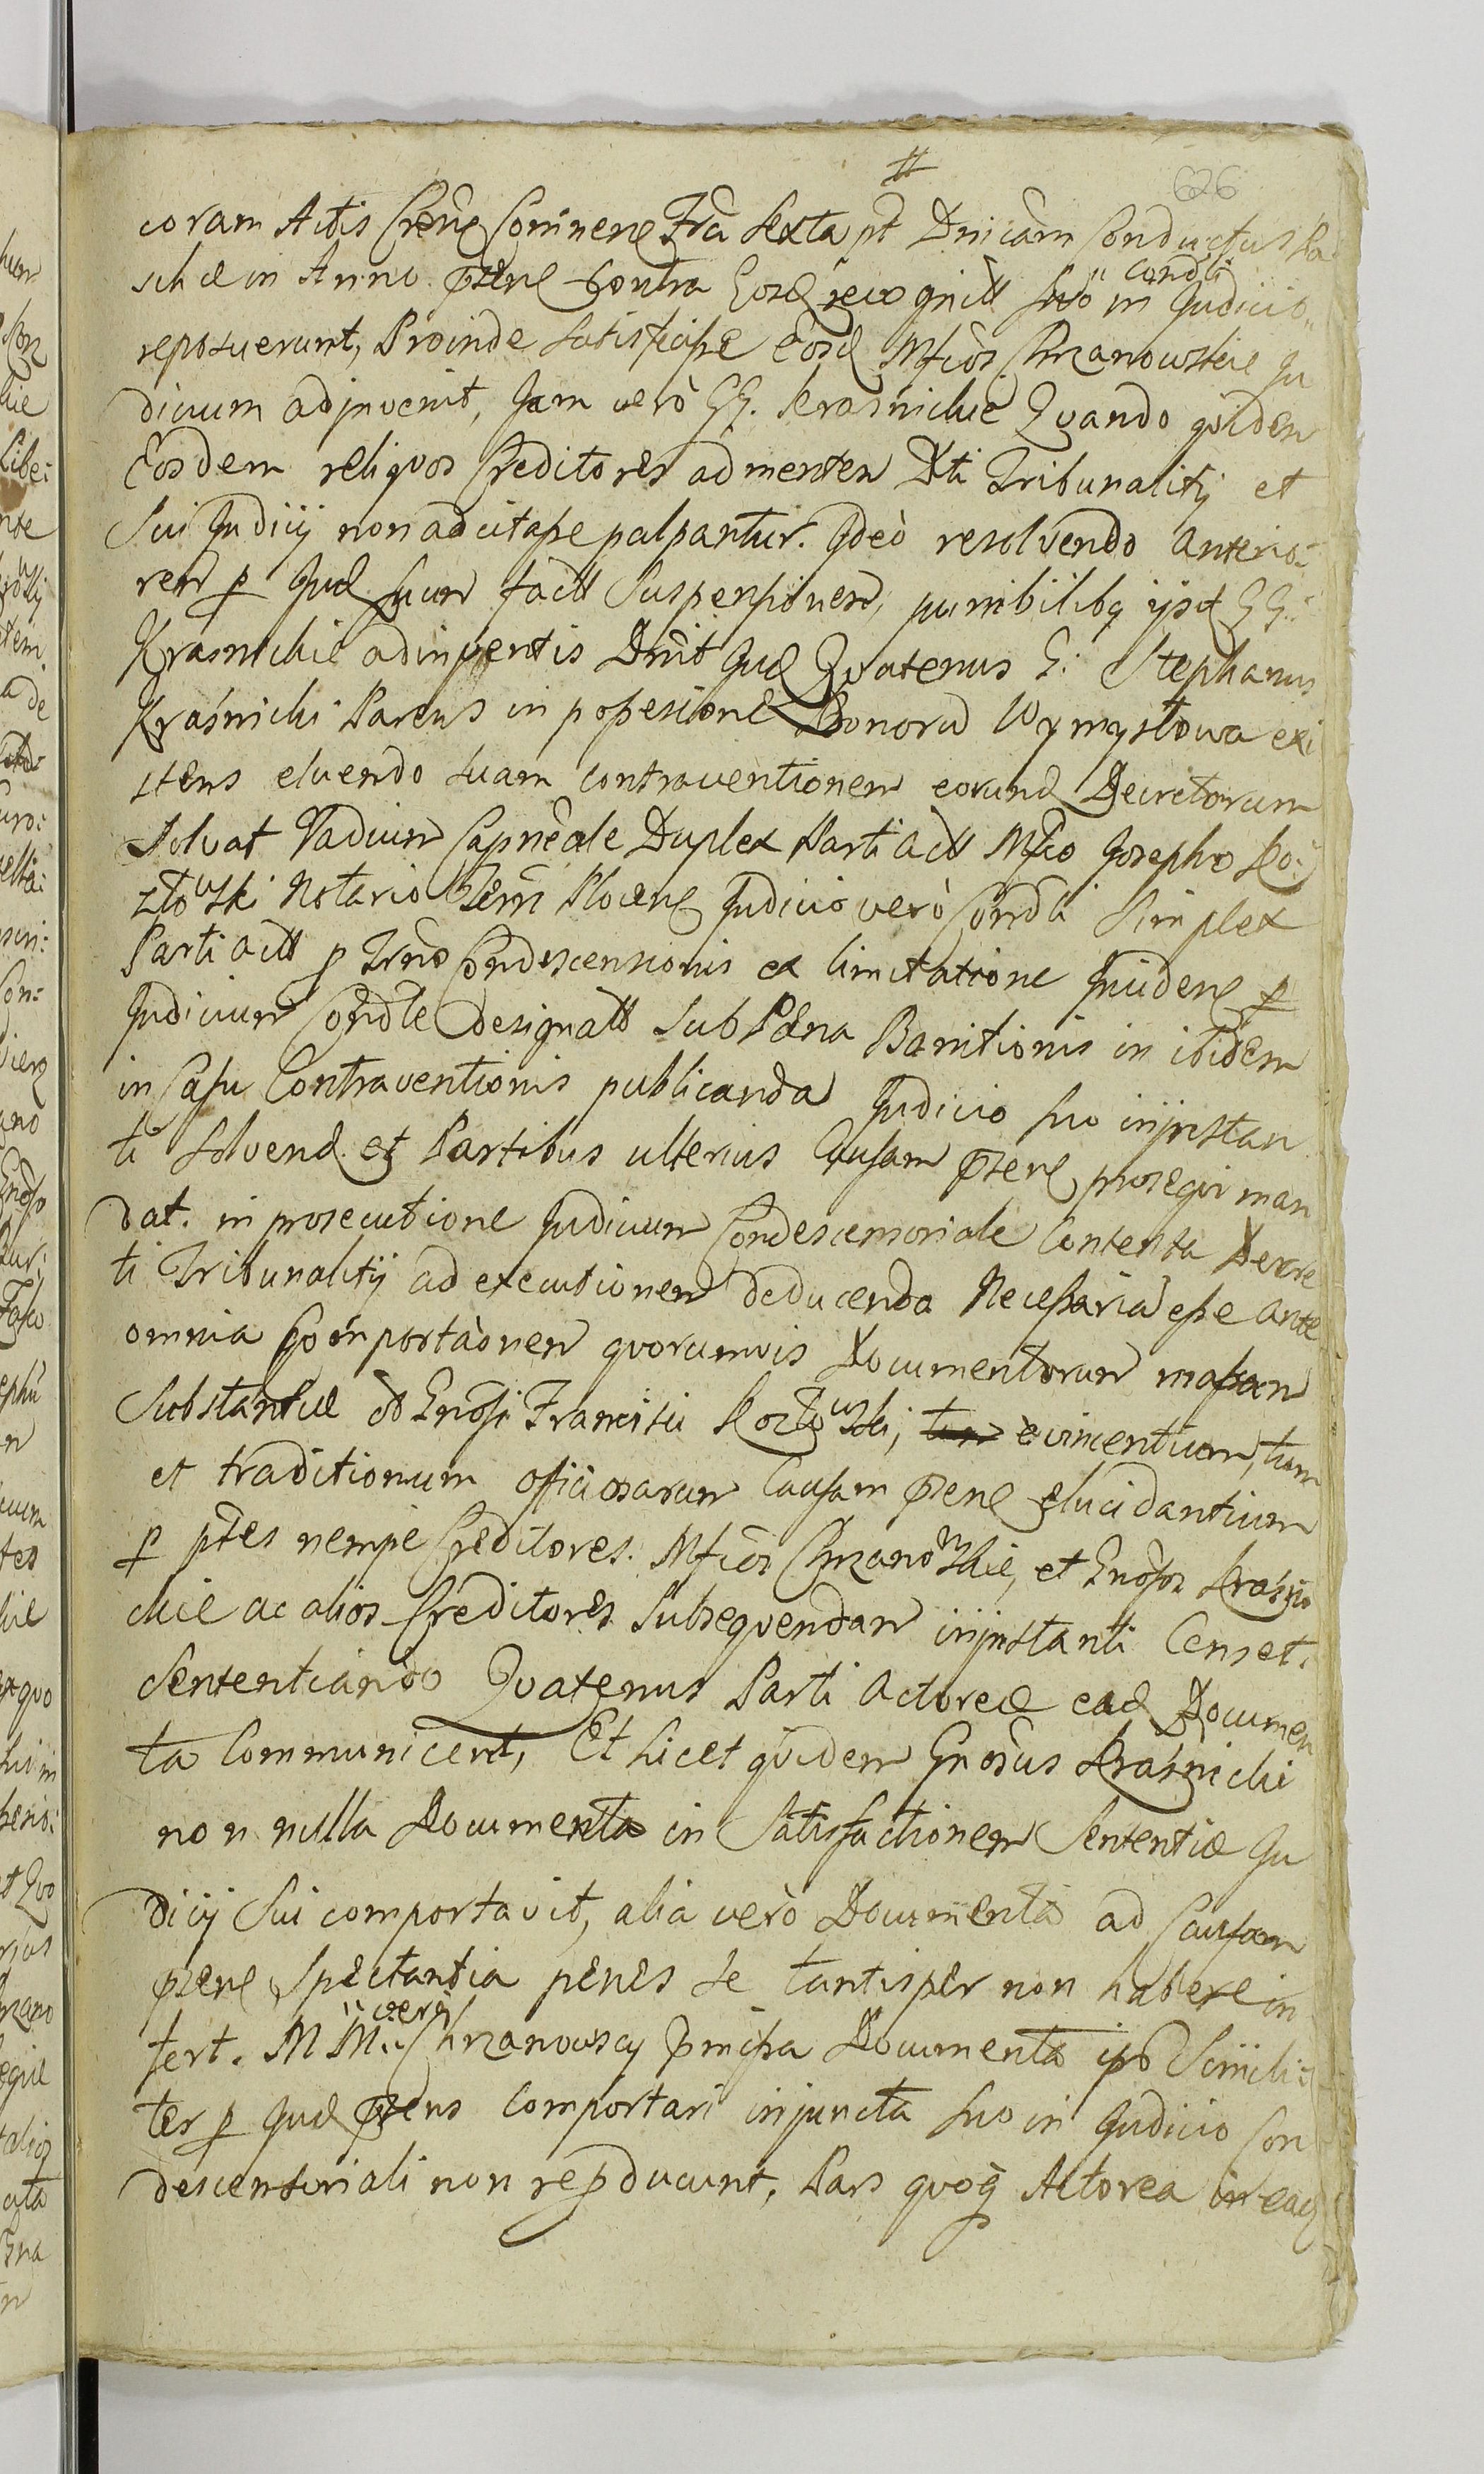 626
coram Actis Crene Comnene Fra Sexta pt Dnicam Conductus Pa
schae in Anno psene contra Eosd recognitt suo in "condli Judicio"
reposuerunt, Proinde satisfecisse eosd Mfcos Chrzanowskie Ju
dicium adjuvenit, Jam verò GG. Krasnickie Quando quidem
Eosdem reliquos Creditores ad mentem Dti Tribunalitij et
Sui Judicij non adcitasse palpantur. Ideò resolvendo anterio:
rem p Jud suum factt Suspensionem, punibilibq ijsd GG:
Kraśnickie adinventis Drnit Jud Quatenus G: Stephanus
Kraśnicki Parens in possesione Bonoru Wymysłowa exi
stens eluendo suam contraventionem eorund Decretorum
Solvat Vadium Capneale Duplex Parti actt Mfco Josepho Ko:
złowski Notario Trrii Plocens Judicio verò Condli Simplex
Parti actt p Trno Condescensionis ex limitatione Jnidene p
Judicium Condle designatt Sub Pæna Bannitionis in ibidem
in Casu Contraventionis publicanda Judicio suo inijnstan
ti Solvend et Partibus ulterius Causam psene prosequi man
dat. in prosecutione Judicium Condescensoriale Contenta Decre
ti Tribunalitij ad executionem deducenda Necessaria esse ante
omnia Comportaonem quorumvis Documentorum massam
Substantiæ Gnosi Francisci Kozłowski, evincentium, tum
et traditionum officiosarum Causam psene elucidantium
p ptes nempe Creditores. Mfcos Chrzanowskie, et Gnosos Kraśni
ckie ac alios Creditores Subsequendam inijnstanti Censet.
Sententiando Quatenus Parti Actoreæ ead Documen
ta Communicent, Et licet quidem Gnosus Kraśnicki
non nulla Documenta in Satisfactionem Sententiæ Ju
dicij Sui comportavit, alia verò Documenta ad Causam
psene Spectantia penes se tantisper non habere in
fert. MM. "verò Chrzanowscy pmissa Documenta ipso Simili:
ter p Jud psens Comportari injuncta suo in Judicio Con
descensoriali non repducunt, Pars quoq Actorea in ead